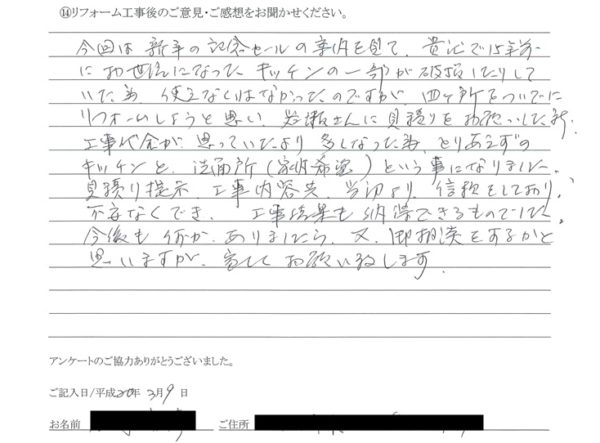 ⑭リフォーム工事後のご意見・ご感想をお聞かせください。
今回は新年の記念セールの案内を見て、貴社で15年前
にお世話になったキッチンの一部が破損したりして
いた為 使えなくはなかったのですが 四ヶ所をついでに
リフォームしようと思い 岩瀬さんに見積りをお願いした所
工事代金が思っていたより多くなった為、とりあえずの
キッチンと、洗面所(家内希望)という事になりました。
見積り提示 工事内容共、当初より、信頼をしており、
不安なくでき、工事結果も納得できるものでした。
今後も何か、ありましたら、又、御相談をするかと
思いますが、宜しくお願い致します。
アンケートのご協力ありがとうございました。
ご記入日/平成20年 3月9日
お名前 ご住所